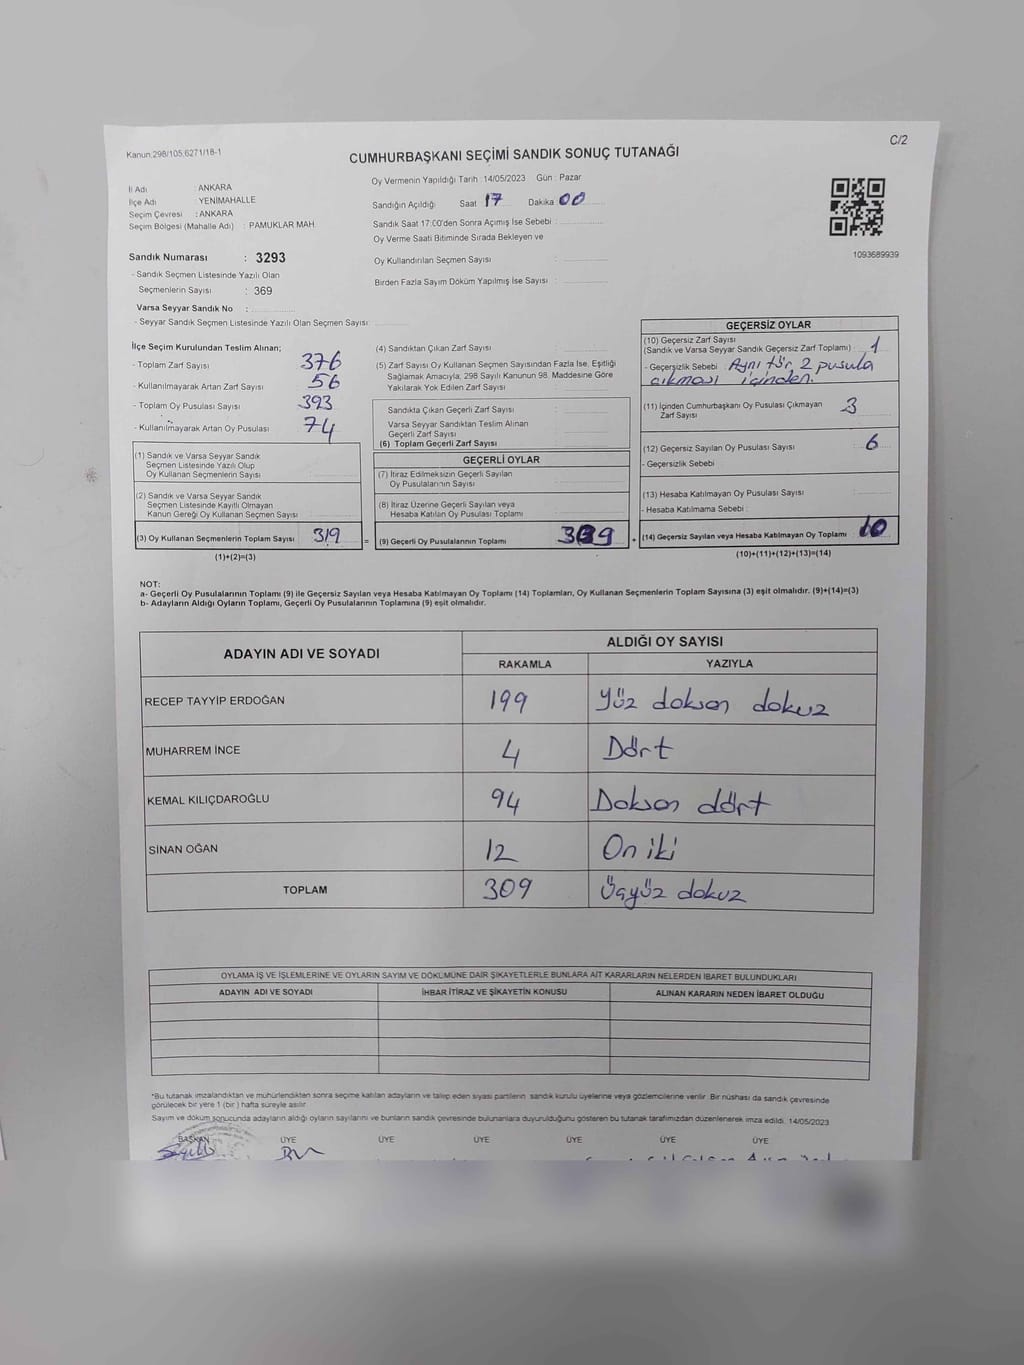 Kanun 298/105,6271/18-1
C/2
CUMHURBAŞKANI SEÇİMİ SANDIK SONUÇ TUTANAĞI
İl Adı : ANKARA
İlçe Adı : YENİMAHALLE
Seçim Çevresi : ANKARA
Seçim Bölgesi (Mahalle Adı) : PAMUKLAR MAH
Sandık Numarası : 3293
- Sandık Seçmen Listesinde Yazılı Olan
Seçmenlerin Sayısı : 369
Varsa Seyyar Sandık No :
- Seyyar Sandık Seçmen Listesinde Yazılı Olan Seçmen Sayısı
Oy Vermenin Yapıldığı Tarih : 14/05/2023 Gün : Pazar
Sandığın Açıldığı Saat 17 Dakika : 00
Sandık Saat 17:00'den Sonra Açımış İse Sebebi :
Oy Verme Saati Bitiminde Sırada Bekleyen ve
Oy Kullandırılan Seçmen Sayısı :
Birden Fazla Sayım Döküm Yapılmış İse Sayısı :
1093689939
İlçe Seçim Kurulundan Teslim Alınan;
- Toplam Zarf Sayısı : 376
- Kullanılmayarak Artan Zarf Sayısı : 56
- Toplam Oy Pusulası Sayısı : 393
- Kullanılmayarak Artan Oy Pusulası : 74
(1) Sandık ve Varsa Seyyar Sandık
Seçmen Listesinde Yazılı Olup
Oy Kullanan Seçmenlerin Sayısı :
(2) Sandık ve Varsa Seyyar Sandık
Seçmen Listesinde Kayıtlı Olmayan
Kanun Gereği Oy Kullanan Seçmen Sayısı :
(3) Oy Kullanan Seçmenlerin Toplam Sayısı : 319 =
(1)+(2)=(3)
(4) Sandıktan Çıkan Zarf Sayısı :
(5) Zarf Sayısı Oy Kullanan Seçmen Sayısından Fazla İse, Eşitliği
Sağlamak Amacıyla; 298 Sayılı Kanunun 98. Maddesine Göre
Yakılarak Yok Edilen Zarf Sayısı :
Sandıkta Çıkan Geçerli Zarf Sayısı :
Varsa Seyyar Sandıktan Teslim Alınan
Geçerli Zarf Sayısı :
(6) Toplam Geçerli Zarf Sayısı
GEÇERLİ OYLAR
(7) İtiraz Edilmeksizin Geçerli Sayılan
Oy Pusulalarının Sayısı :
(8) İtiraz Üzerine Geçerli Sayılan veya
Hesaba Katılan Oy Pusulası Toplamı :
(9) Geçerli Oy Pusulalarının Toplamı : 309 +
GEÇERSİZ OYLAR
(10) Geçersiz Zarf Sayısı
(Sandık ve Varsa Seyyar Sandık Geçersiz Zarf Toplamı) : 1
- Geçersizlik Sebebi : Aynı tür, 2 pusula
çıkması içinden.
(11) İçinden Cumhurbaşkanı Oy Pusulası Çıkmayan
Zarf Sayısı : 3
(12) Geçersiz Sayılan Oy Pusulası Sayısı : 6
- Geçersizlik Sebebi
(13) Hesaba Katılmayan Oy Pusulası Sayısı :
- Hesaba Katılmama Sebebi :
(14) Geçersiz Sayılan veya Hesaba Katılmayan Oy Toplamı : 10
(10)+(11)+(12)+(13)=(14)
NOT:
a- Geçerli Oy Pusulalarının Toplamı (9) ile Geçersiz Sayılan veya Hesaba Katılmayan Oy Toplamı (14) Toplamları, Oy Kullanan Seçmenlerin Toplam Sayısına (3) eşit olmalıdır. (9)+(14)=(3)
b- Adayların Aldığı Oyların Toplamı, Geçerli Oy Pusulalarının Toplamına (9) eşit olmalıdır.
ADAYIN ADI VE SOYADI
ALDIĞI OY SAYISI
RAKAMLA YAZIYLA
RECEP TAYYİP ERDOĞAN 199 Yüz doksan dokuz
MUHARREM İNCE 4 Dört
KEMAL KILIÇDAROĞLU 94 Doksan dört
SİNAN OĞAN 12 On iki
TOPLAM 309 Üçyüz dokuz
OYLAMA İŞ VE İŞLEMLERİNE VE OYLARIN SAYIM VE DÖKÜMÜNE DAİR ŞİKAYETLERLE BUNLARA AİT KARARLARIN NELERDEN İBARET BULUNDUKLARI
ADAYIN ADI VE SOYADI İHBAR İTİRAZ VE ŞİKAYETİN KONUSU ALINAN KARARIN NEDEN İBARET OLDUĞU
*Bu tutanak imzalandıktan ve mühürlendikten sonra seçime katılan adayların ve talep eden siyasi partilerin sandık kurulu üyelerine veya gözlemcilerine verilir. Bir nüshası da sandık çevresinde
görülecek bir yere 1 (bir) hafta süreyle asılır.
Sayım ve döküm sonucunda adayların aldığı oyların sayılarını ve bunların sandık çevresinde bulunanlara duyurulduğunu gösteren bu tutanak tarafımızdan düzenlenerek imza edildi. 14/05/2023
BAŞKAN ÜYE ÜYE ÜYE ÜYE ÜYE ÜYE